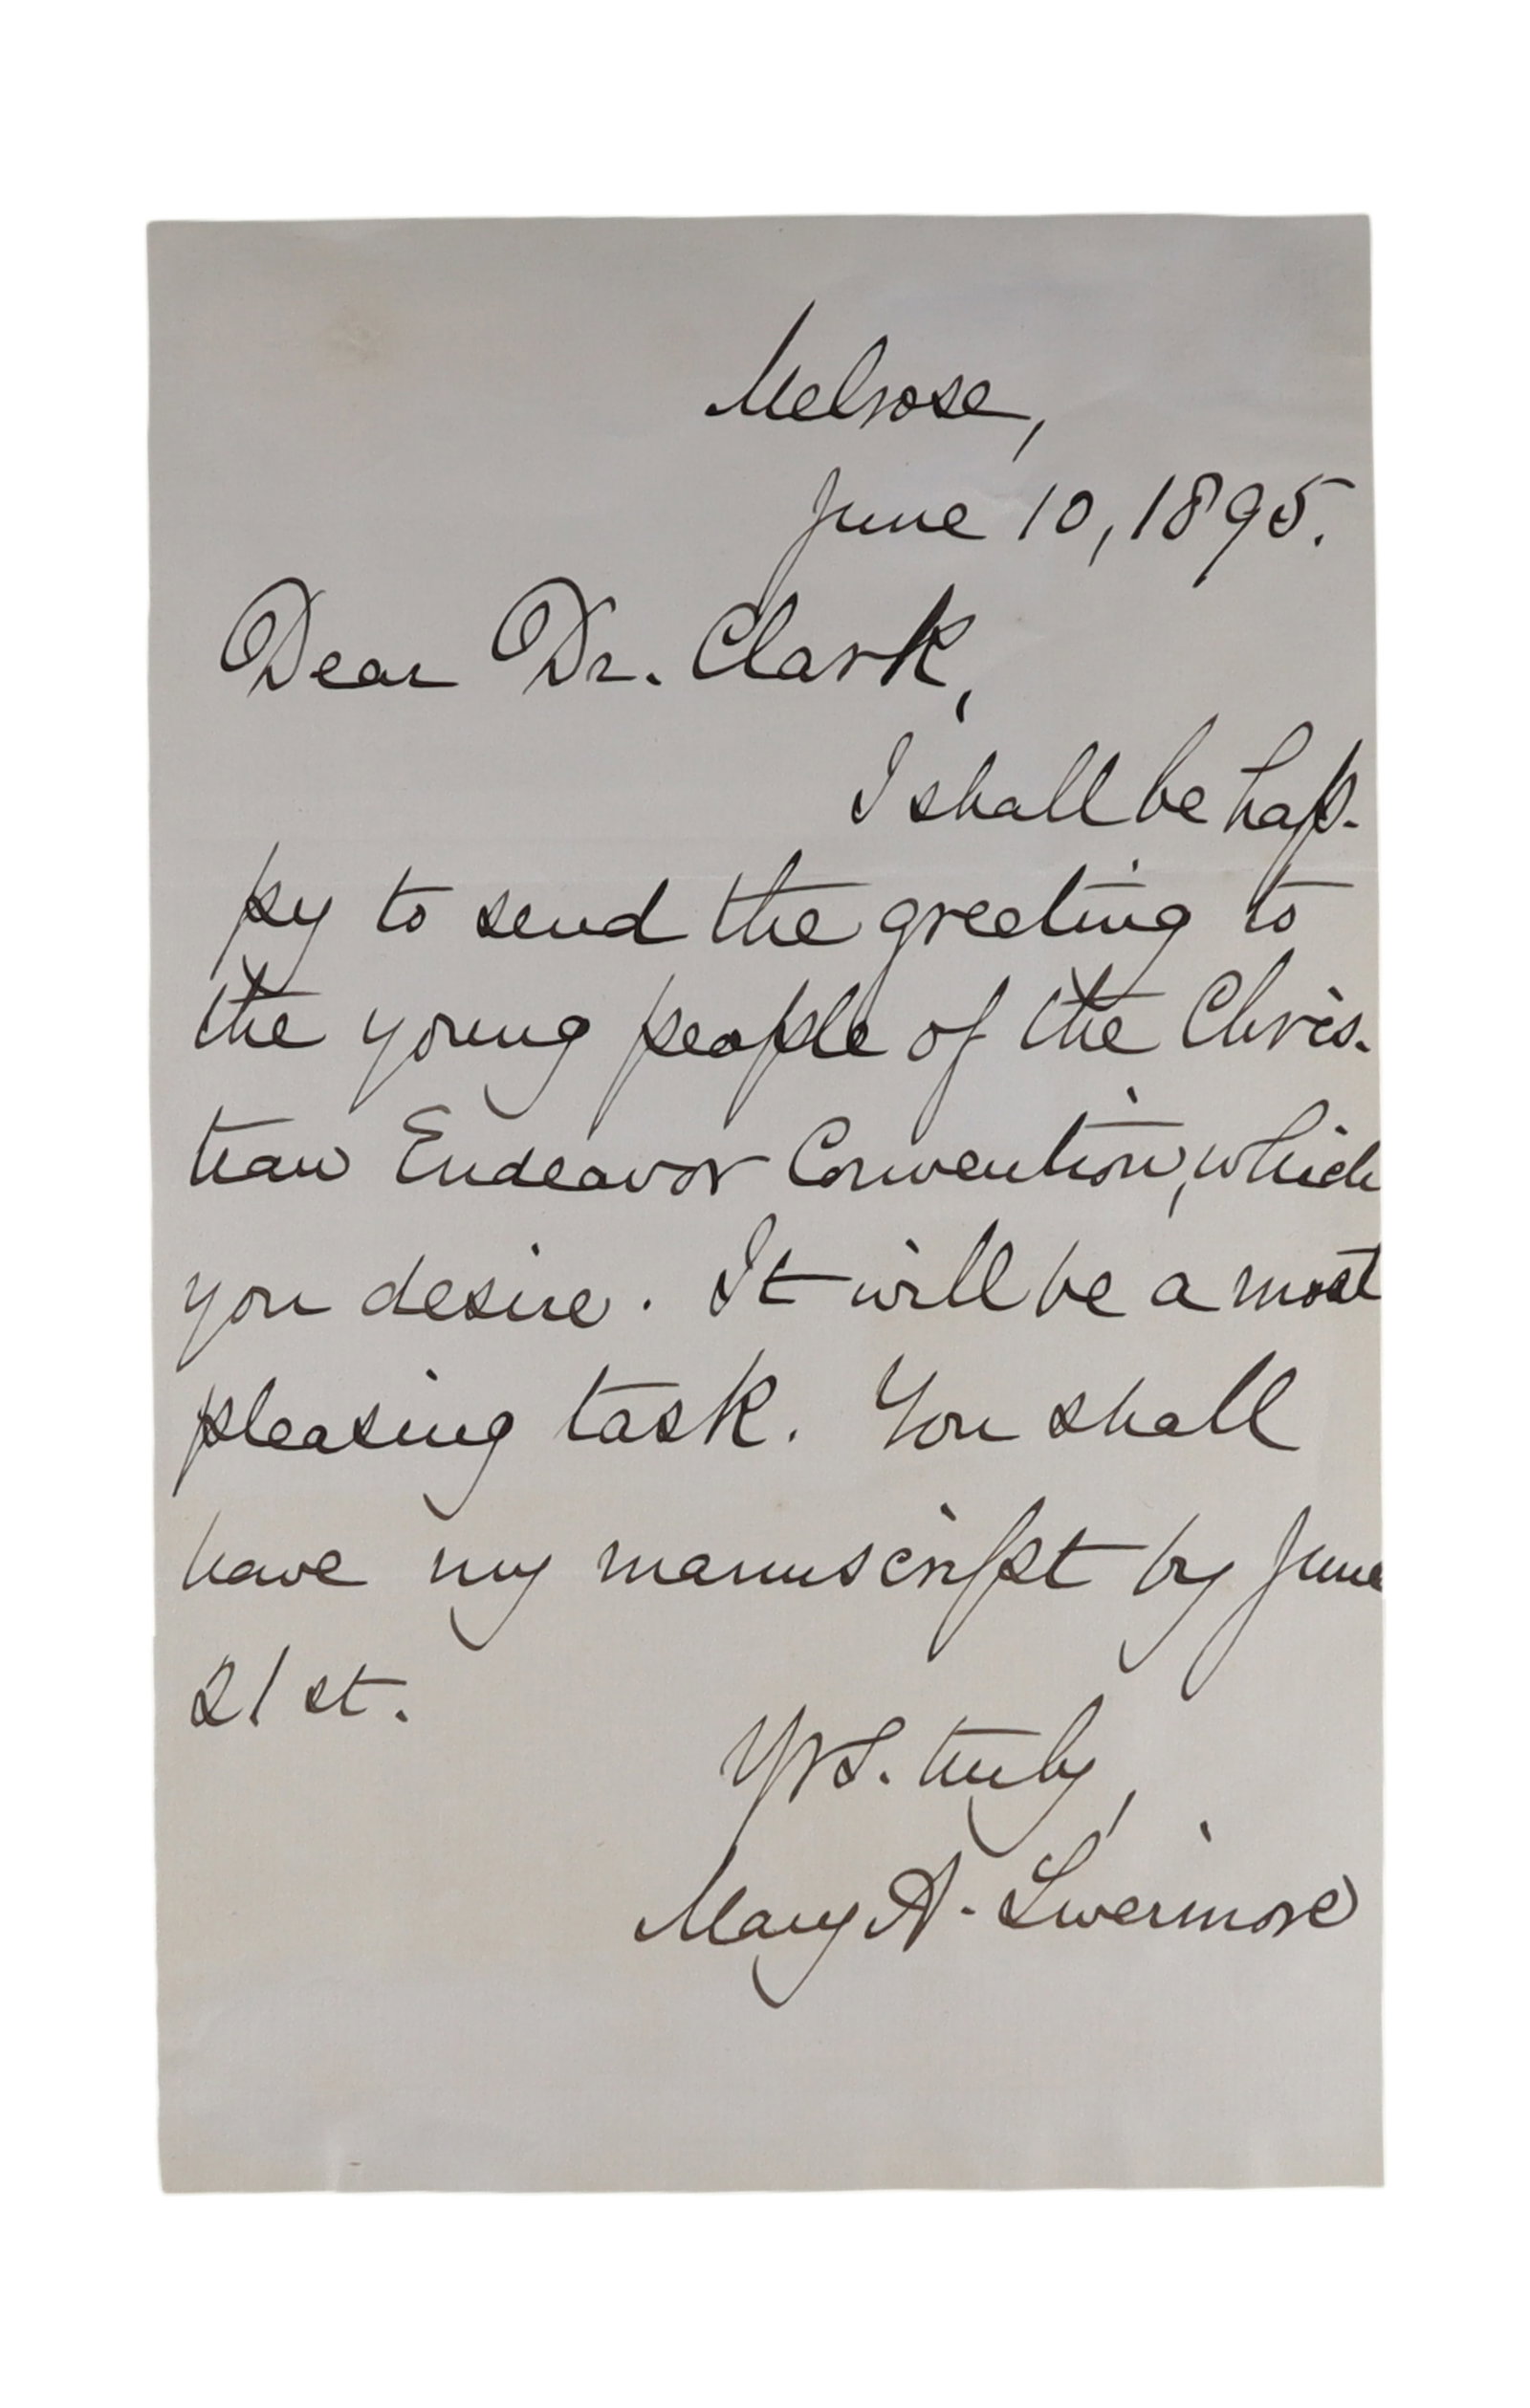 Melrose,
June 10, 1895.
Dear Dr. Clark,
I shall be hap-
py to send the greeting to
the young people of the Chris-
tian Endeavor Convention, which
you desire. It will be a most
pleasing task. You shall
have my manuscript by June
21st.
Yrs. truly,
Mary A. Livermore